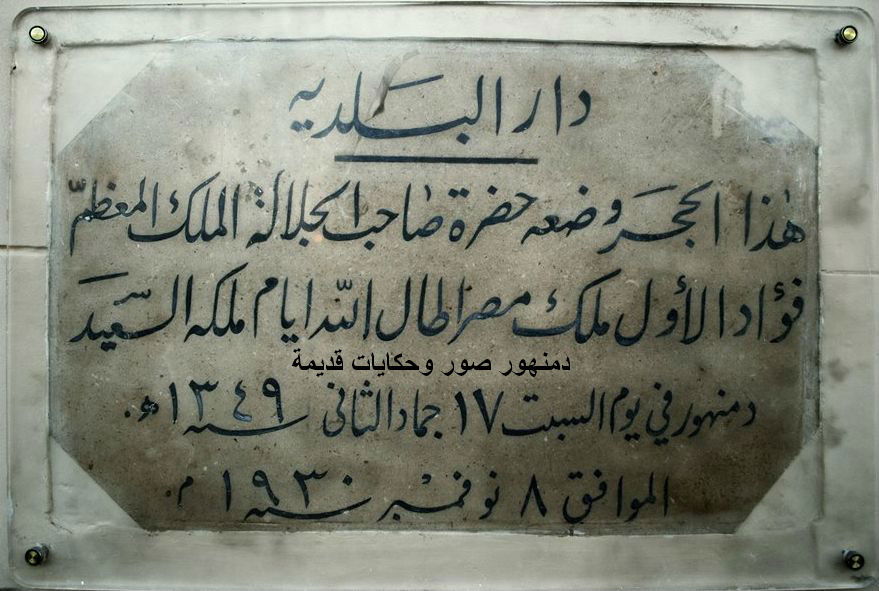 دار البلديه
هٰذا الحجر وضعه حضرة صاحب الجلالة الملك المعظم
فؤاد الأول ملك مصر اطال الله ايام ملكه السعيد
دمنهور صور وحكايات قديمة
دمنهور في يوم السبت ١٧ جماد الثانى سنه ١٣٤٩ ه‍.
الموافق ٨ نوفمبر سنه ١٩٣٠ م.